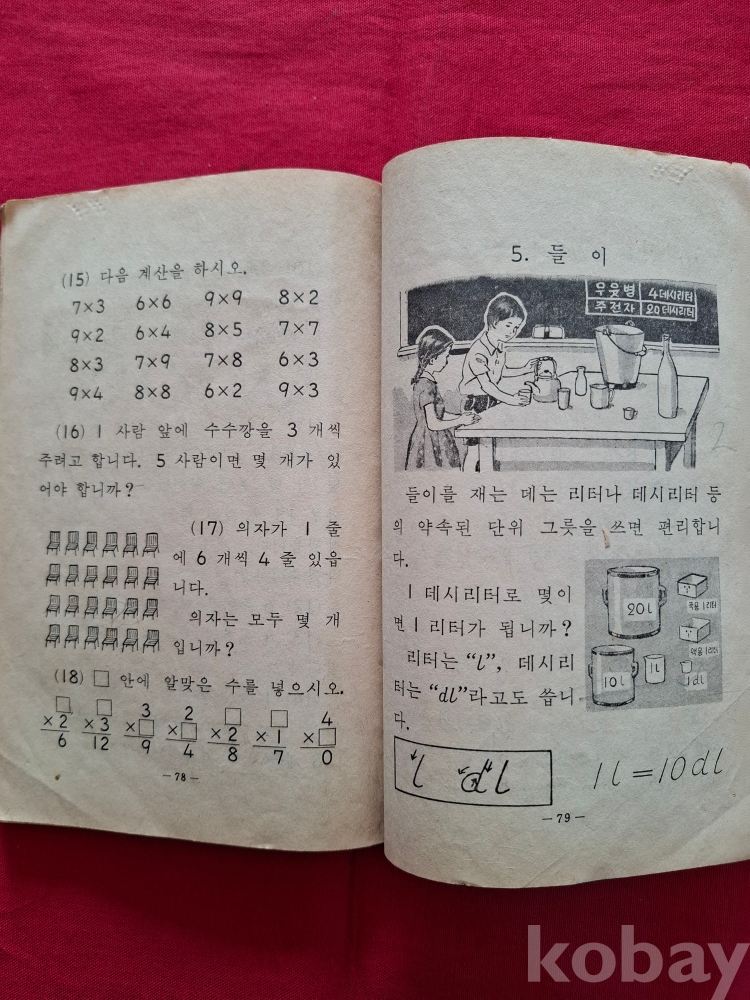 (15) 다음 계산을 하시오.
7×3 6×6 9×9 8×2
9×2 6×4 8×5 7×7
8×3 7×9 7×8 6×3
9×4 8×8 6×2 9×3
(16) 1 사람 앞에 수수깡을 3 개씩
주려고 합니다. 5 사람이면 몇 개가 있
어야 합니까?
(17) 의자가 1 줄
에 6 개씩 4 줄 있읍
니다.
의자는 모두 몇 개
입니까?
(18) □ 안에 알맞은 수를 넣으시오.
□ □ 3 2 □ □ 4
×2 ×3 ×□ ×□ ×2 ×1 ×□
6 12 9 4 8 7 0
—78—
5. 들 이
우윳병 4데시리터
주전자 20데시리터
2
들이를 재는 데는 리터나 데시리터 등
의 약속된 단위 그릇을 쓰면 편리합니
다.
1 데시리터로 몇이
면 1 리터가 됩니까?
리터는 “l”, 데시리
터는 “dl”라고도 씁니
다.
20l
1리터
1리터
10l 1l 1dl
l dl
1l=10dl
—79—
kobay